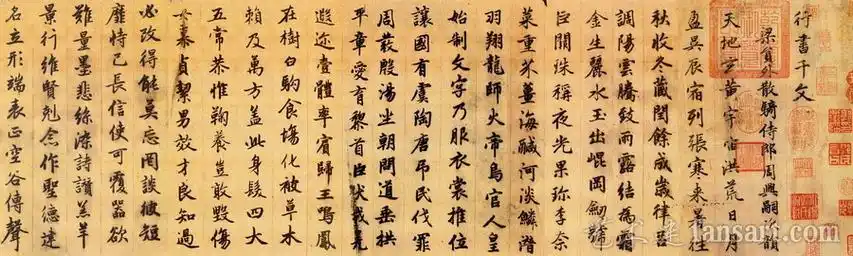 行書千文
梁員外散騎侍郎周興嗣次韻
天地玄黃宇宙洪荒日月
盈昃辰宿列張寒来暑往
秋收冬藏閏餘成歲律呂
調陽雲騰致雨露結為霜
金生麗水玉出崐岡劒號
巨闕珠稱夜光果珍李奈
菜重芥薑海鹹河淡鱗潛
羽翔龍師火帝鳥官人皇
始制文字乃服衣裳推位
讓國有虞陶唐吊民伐罪
周發殷湯坐朝問道垂拱
平章愛育黎首臣伏戎羌
遐迩壹體率賓歸王鳴鳳
在樹白駒食場化被草木
賴及萬方盖此身髮四大
五常恭惟鞠養豈敢毀傷
女慕貞潔男效才良知過
必改得能莫忘罔談彼短
靡恃己長信使可覆器欲
難量墨悲絲染詩讚羔羊
景行維賢剋念作聖德建
名立形端表正空谷傳聲